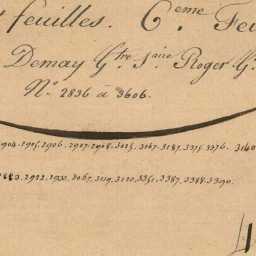 feuilles. 6.eme Feu
Demay G.tre J.aire Roger G.
N.º 2836 à 3606.
1904. 1905. 1906. 2907. 2908. 3025. 3067. 3187. 3375. 3376. 3140
2922. 2932. 3067. 3119. 3120. 3351. 3387. 3388. 3390.